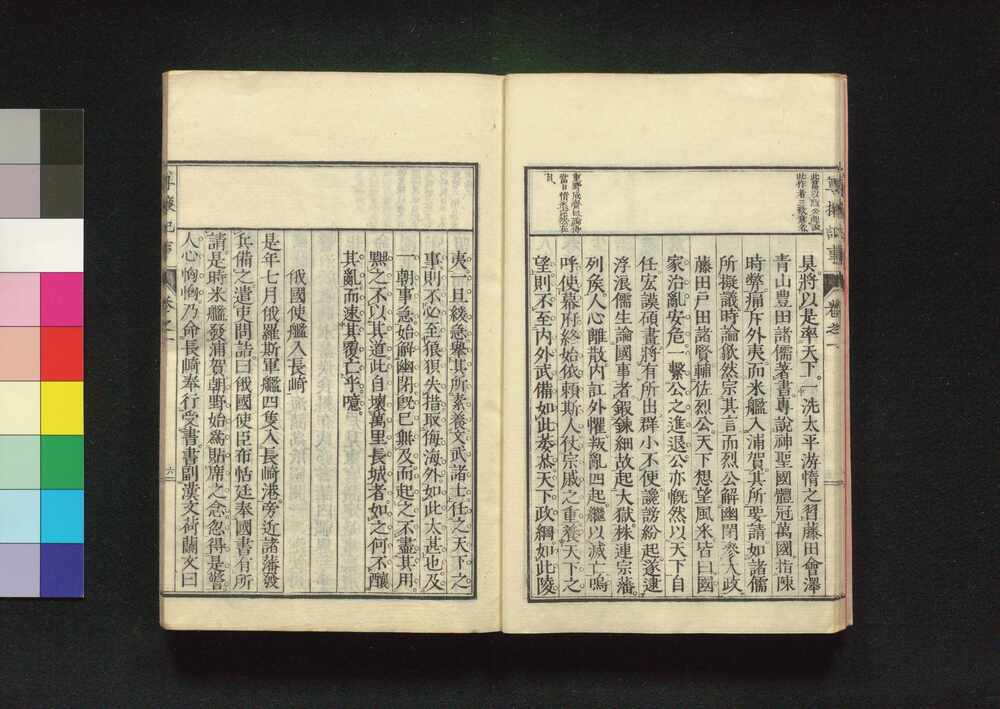 具將以是率天下一洗太平游惰之習藤田會澤
青山豊田諸儒著書專說神聖國體冠萬國指陳
時弊痛斥外夷而米艦入浦賀其所要請如諸儒
所擬議時論歙然宗其言而烈公解幽閉參大政
藤田戸田諸賢輔佐烈公天下想望風采皆曰國
家治亂安危一繫公之進退公亦慨然以天下自
任宏謨碩畫將有所出群小不便讒謗紛起遂逮
浮浪儒生論國事者鍛鍊細故起大獄株連宗藩
列矦人心離散内訌外懼叛亂四起繼以滅亡嗚
呼使幕府終始依賴斯人仗宗戚之重養天下之
望則不至内外武備如此苶苶天下政綱如此陵
夷一旦緩急舉其所素養文武諸士任之天下之
事則不必至狼狽失措取侮海外如此太甚也及
一朝事急始解幽閉既已無及而起之不盡其用
黜之不以其道此自壞萬里長城者如之何不釀
其亂而速其覆亡乎噫
俄國使艦入長崎
是年七月俄羅斯軍艦四隻入長崎港旁近諸藩發
兵備之遣吏問詰曰俄國使臣布恬廷奉國書有所
請是時米艦發浦賀朝野始爲貼席之念忽得是警
人心恟恟乃命長崎奉行受書書副漢文荷蘭文曰
卷之一